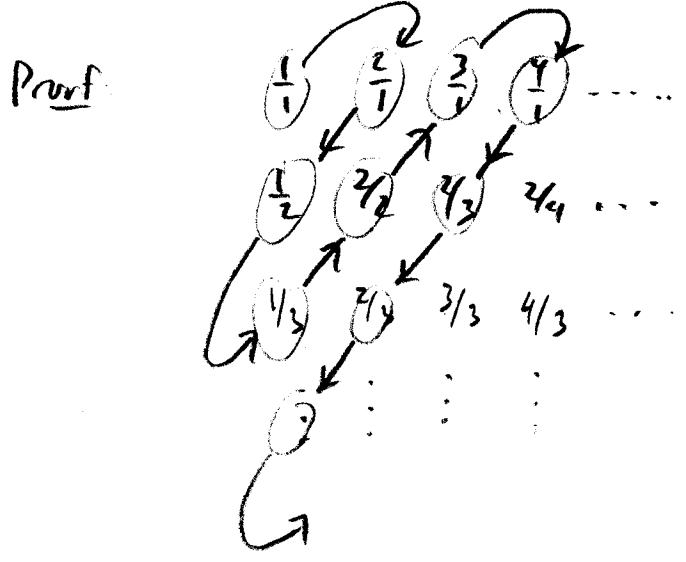 Proof 1/1 2/1 3/1 4/1 .....
1/2 2/2 2/3 2/4 ...
1/3 2/3 3/3 4/3 ...